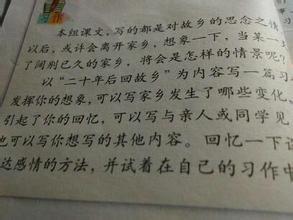 习作
本组课文,写的都是对故乡的思念之情
以后,或许会离开家乡,想象一下,当某一
了阔别已久的家乡,将会是怎样的情景呢?
以“二十年后回故乡”为内容写一篇习
发挥你的想象,可以写家乡发生了哪些变化
引起了你的回忆,可以写与亲人或同学见
也可以写你想写的其他内容。回忆一下
达感情的方法,并试着在自己的习作中